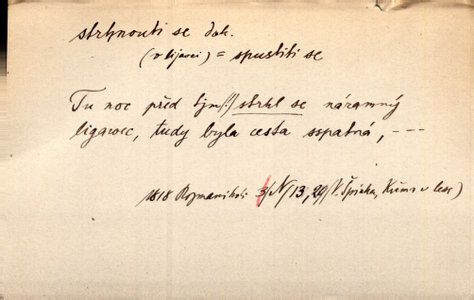 strhnouti se dok.
(o lijavci) = spustiti se
Tu noc před tjm(!) strhl se náramný
ligawec, tudy byla cesta sspatná, ---
1818 Rozmanitosti 3/N/13, 29/V. Špinka,